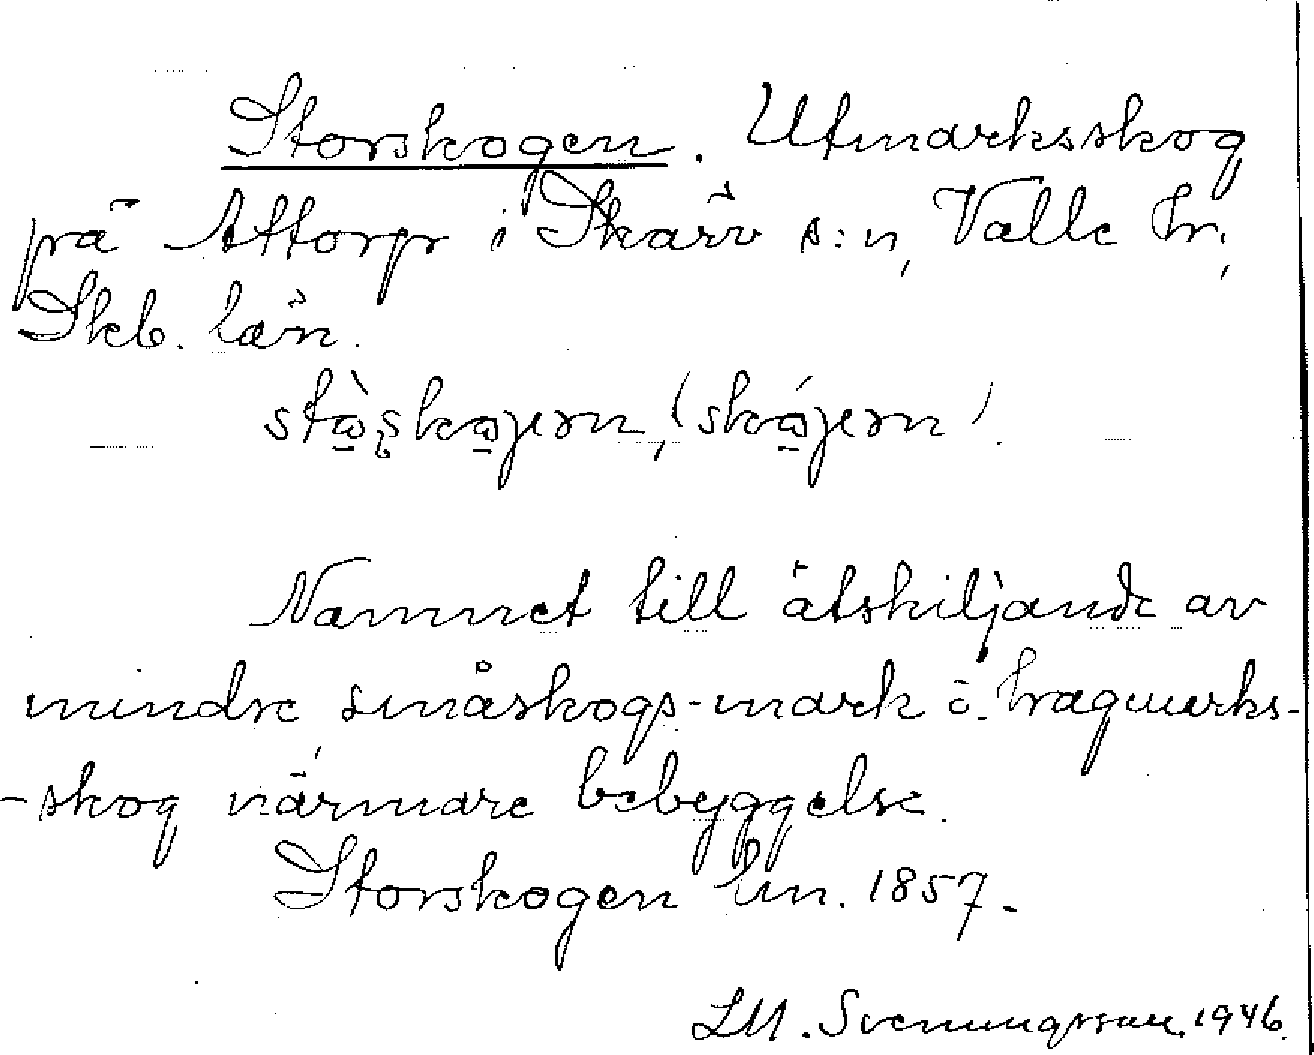 Storskogen. Utmarksskog
på Attorp i Skärv s:n, Valle hr,
Skb. län.
Namnet till åtskiljande av
mindre småskogs-mark o. hagmarks-
-skog närmare bebyggelse.
Storskogen Um. 1857.
L.M. Svenungsson. 1946.